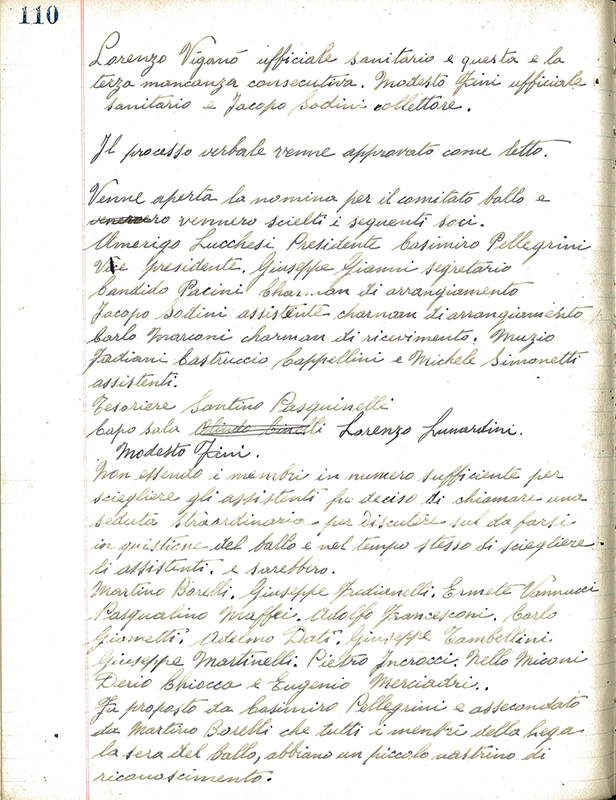 110
Lorenzo Viganó ufficiale sanitario e questa e la
terza mancanza consecutiva. Modesto Fini ufficiale
sanitario e Jacopo Sodini collettore.
Il processo verbale venne approvato come letto.
Venne aperta la nomina per il comitato ballo e
vennero scielti i sequenti soci.
Amerigo Lucchesi Presidente Casimiro Pellegrini
Vice presidente. Giuseppe Gianni segretario
Candido Pacini Charman di arrangiamento
Jacopo Sodini assistente charman di arrangiamento
Carlo Marconi charman di ricevimento. Muzio
Frediani Castruccio Cappellini e Michele Simonetti
assistenti.
Tesoriere Santino Pasquinelli
Capo Sala Lorenzo Lunardini.
Modesto Fini.
Non essendo i membri in numero sufficiente per
sciegliere gli assistenti fu deciso di chiamare una
seduta straordinaria per discutere sul da farsi
in quistione del ballo e nel tempo stesso di sciegliere
li assistenti. e sarebbiro.
Martino Borelli. Giuseppe Fredianelli. Ermete Vannucci
Pasqualino Maffei. Adolfo Francesconi. Carlo
Giometti. Adelmo Dati. Giuseppe Tambellini
Giuseppe Martinelli. Pietro Incrocci. Nello Miconi
Derio Chiocca e Eugenio Merciadri..
Fu proposto da Casimiro Pellegrini e assecondato
da Martino Borelli che tutti i menbri della Lega
la sera del ballo, abbiano un piccolo nastrino di
riconoscimento.